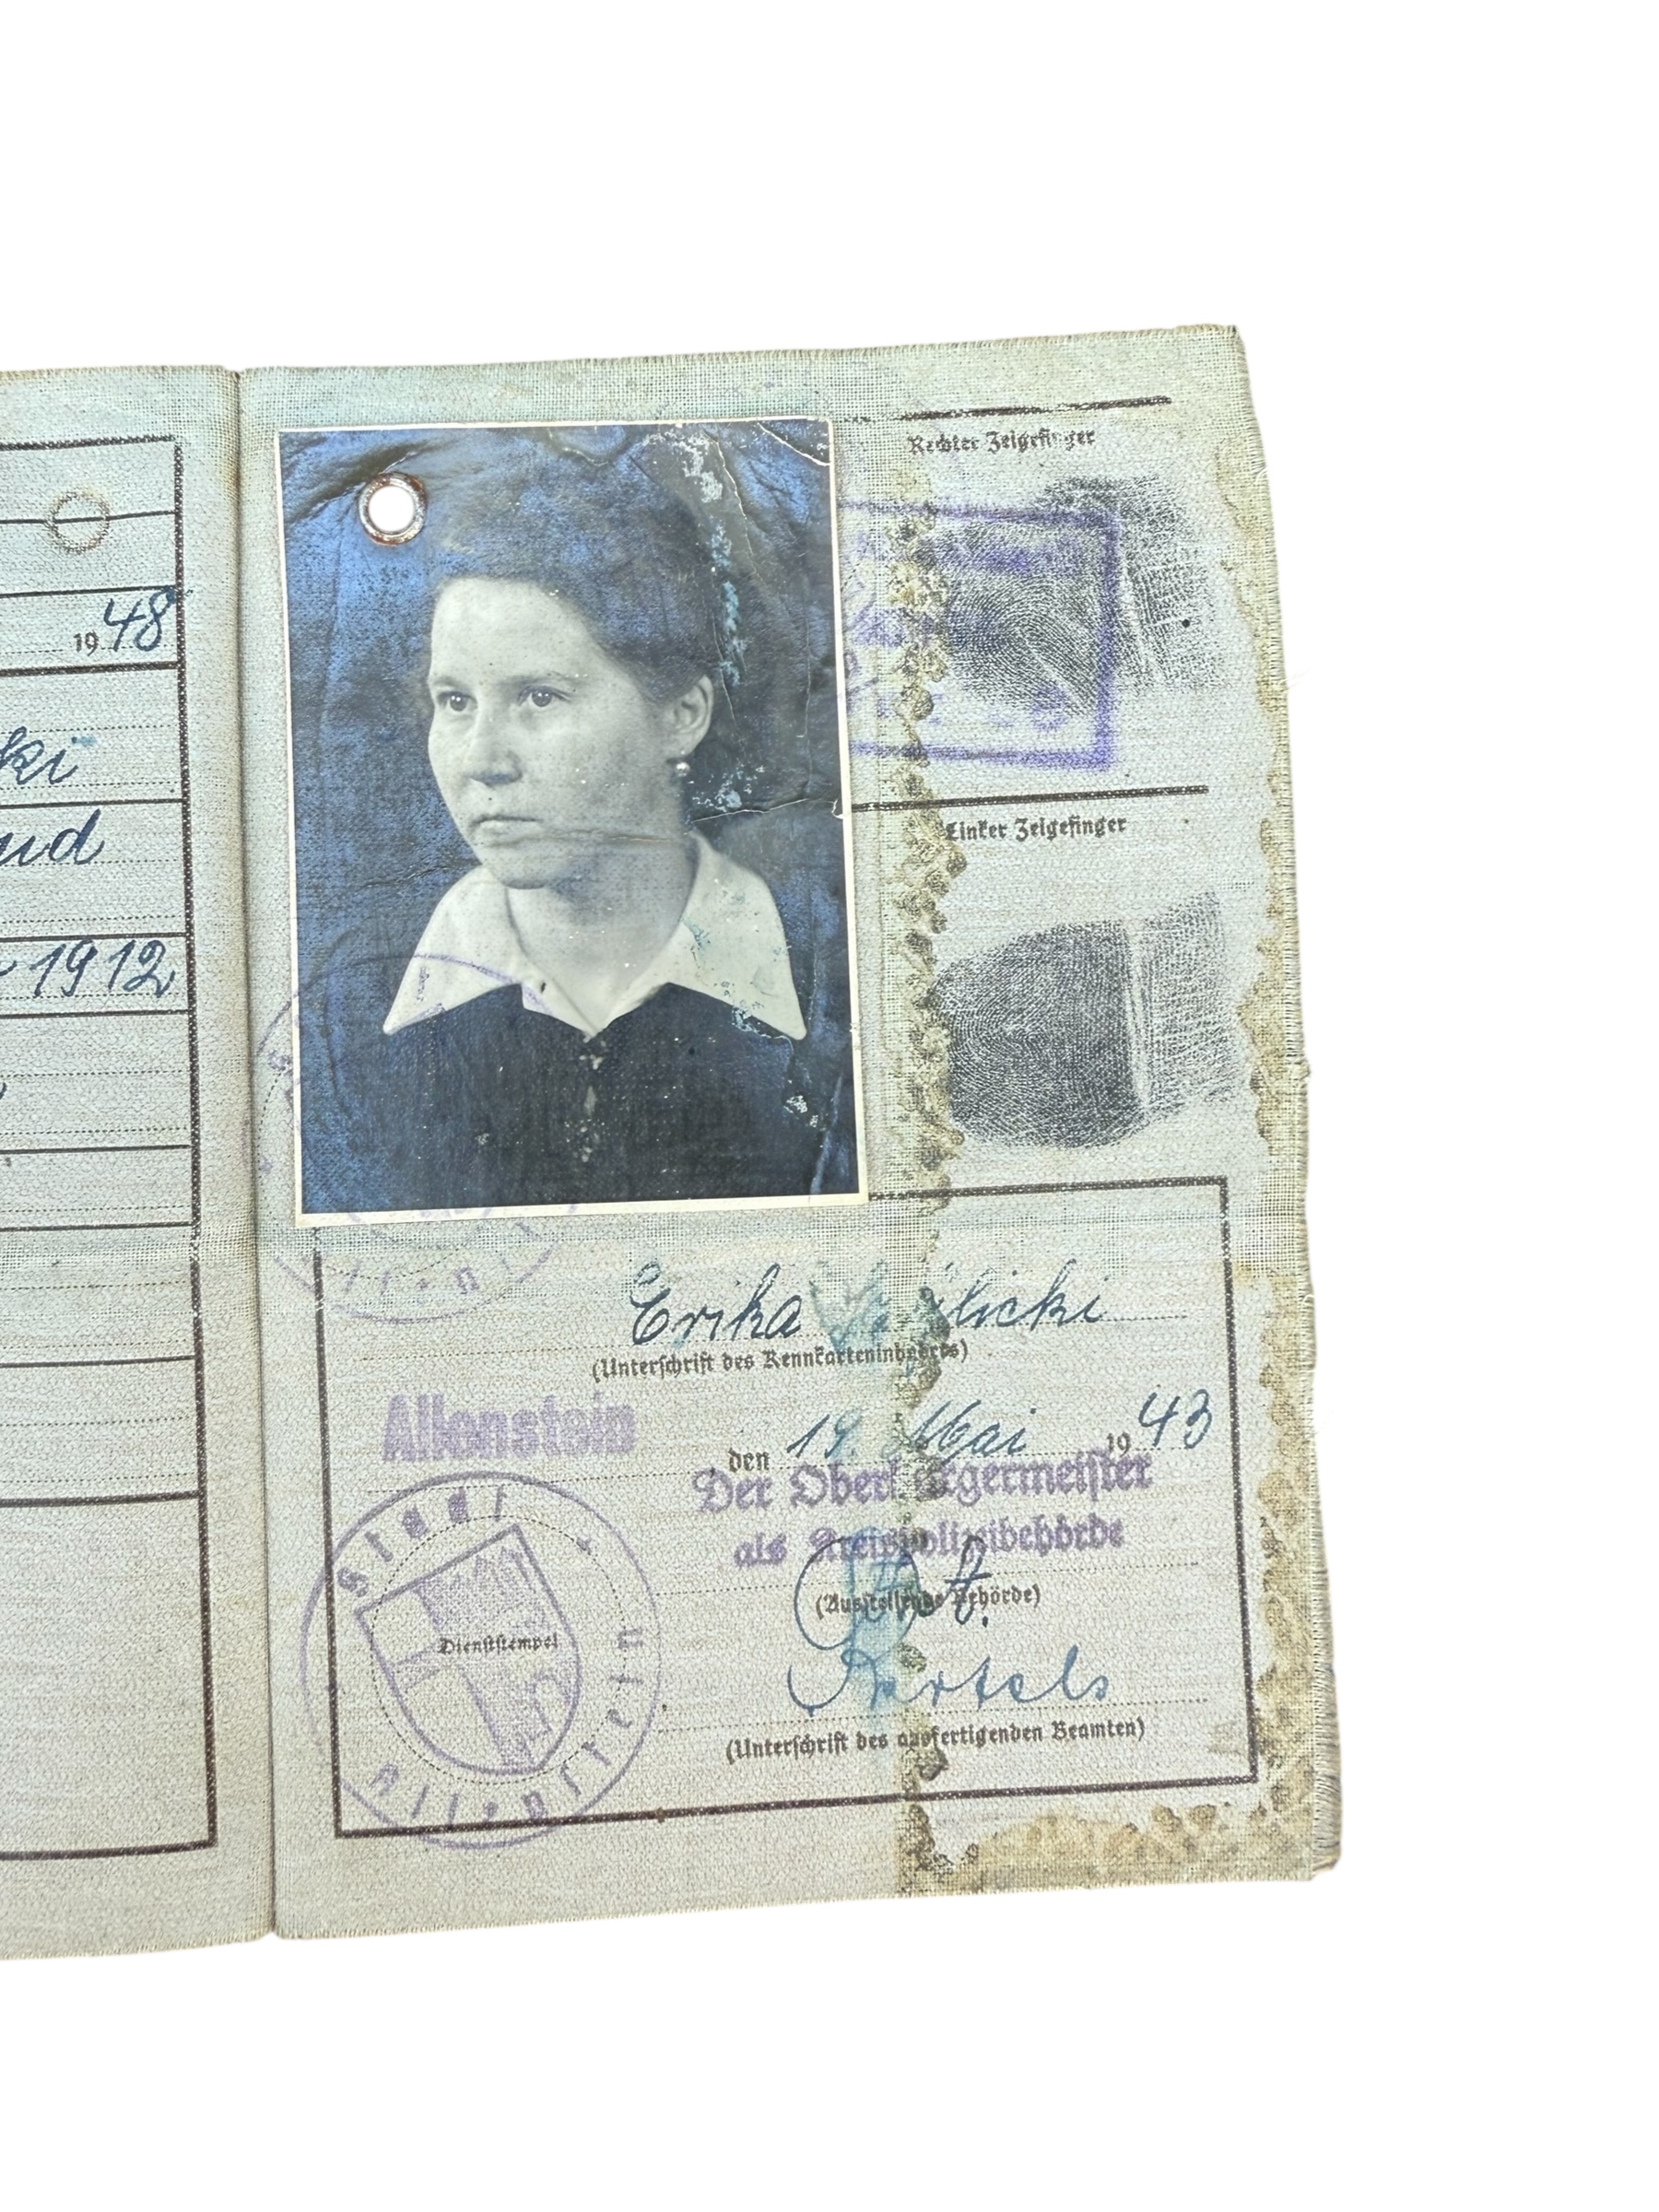 19 48
ki
ud
1912
Rechter Zeigefinger
Linker Zeigefinger
Erika
(Unterschrift des Kennkarteninhabers)
Allenstein
den 19. Mai 19 43
Der Oberbürgermeister
als Kreispolizeibehörde
(Ausstellende Behörde)
Stadt
Dienststempel
Allenstein
Bartels
(Unterschrift des ausfertigenden Beamten)